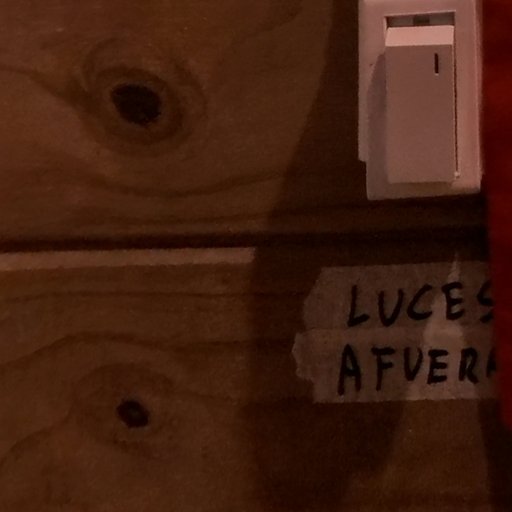 LUCES
AFUERA